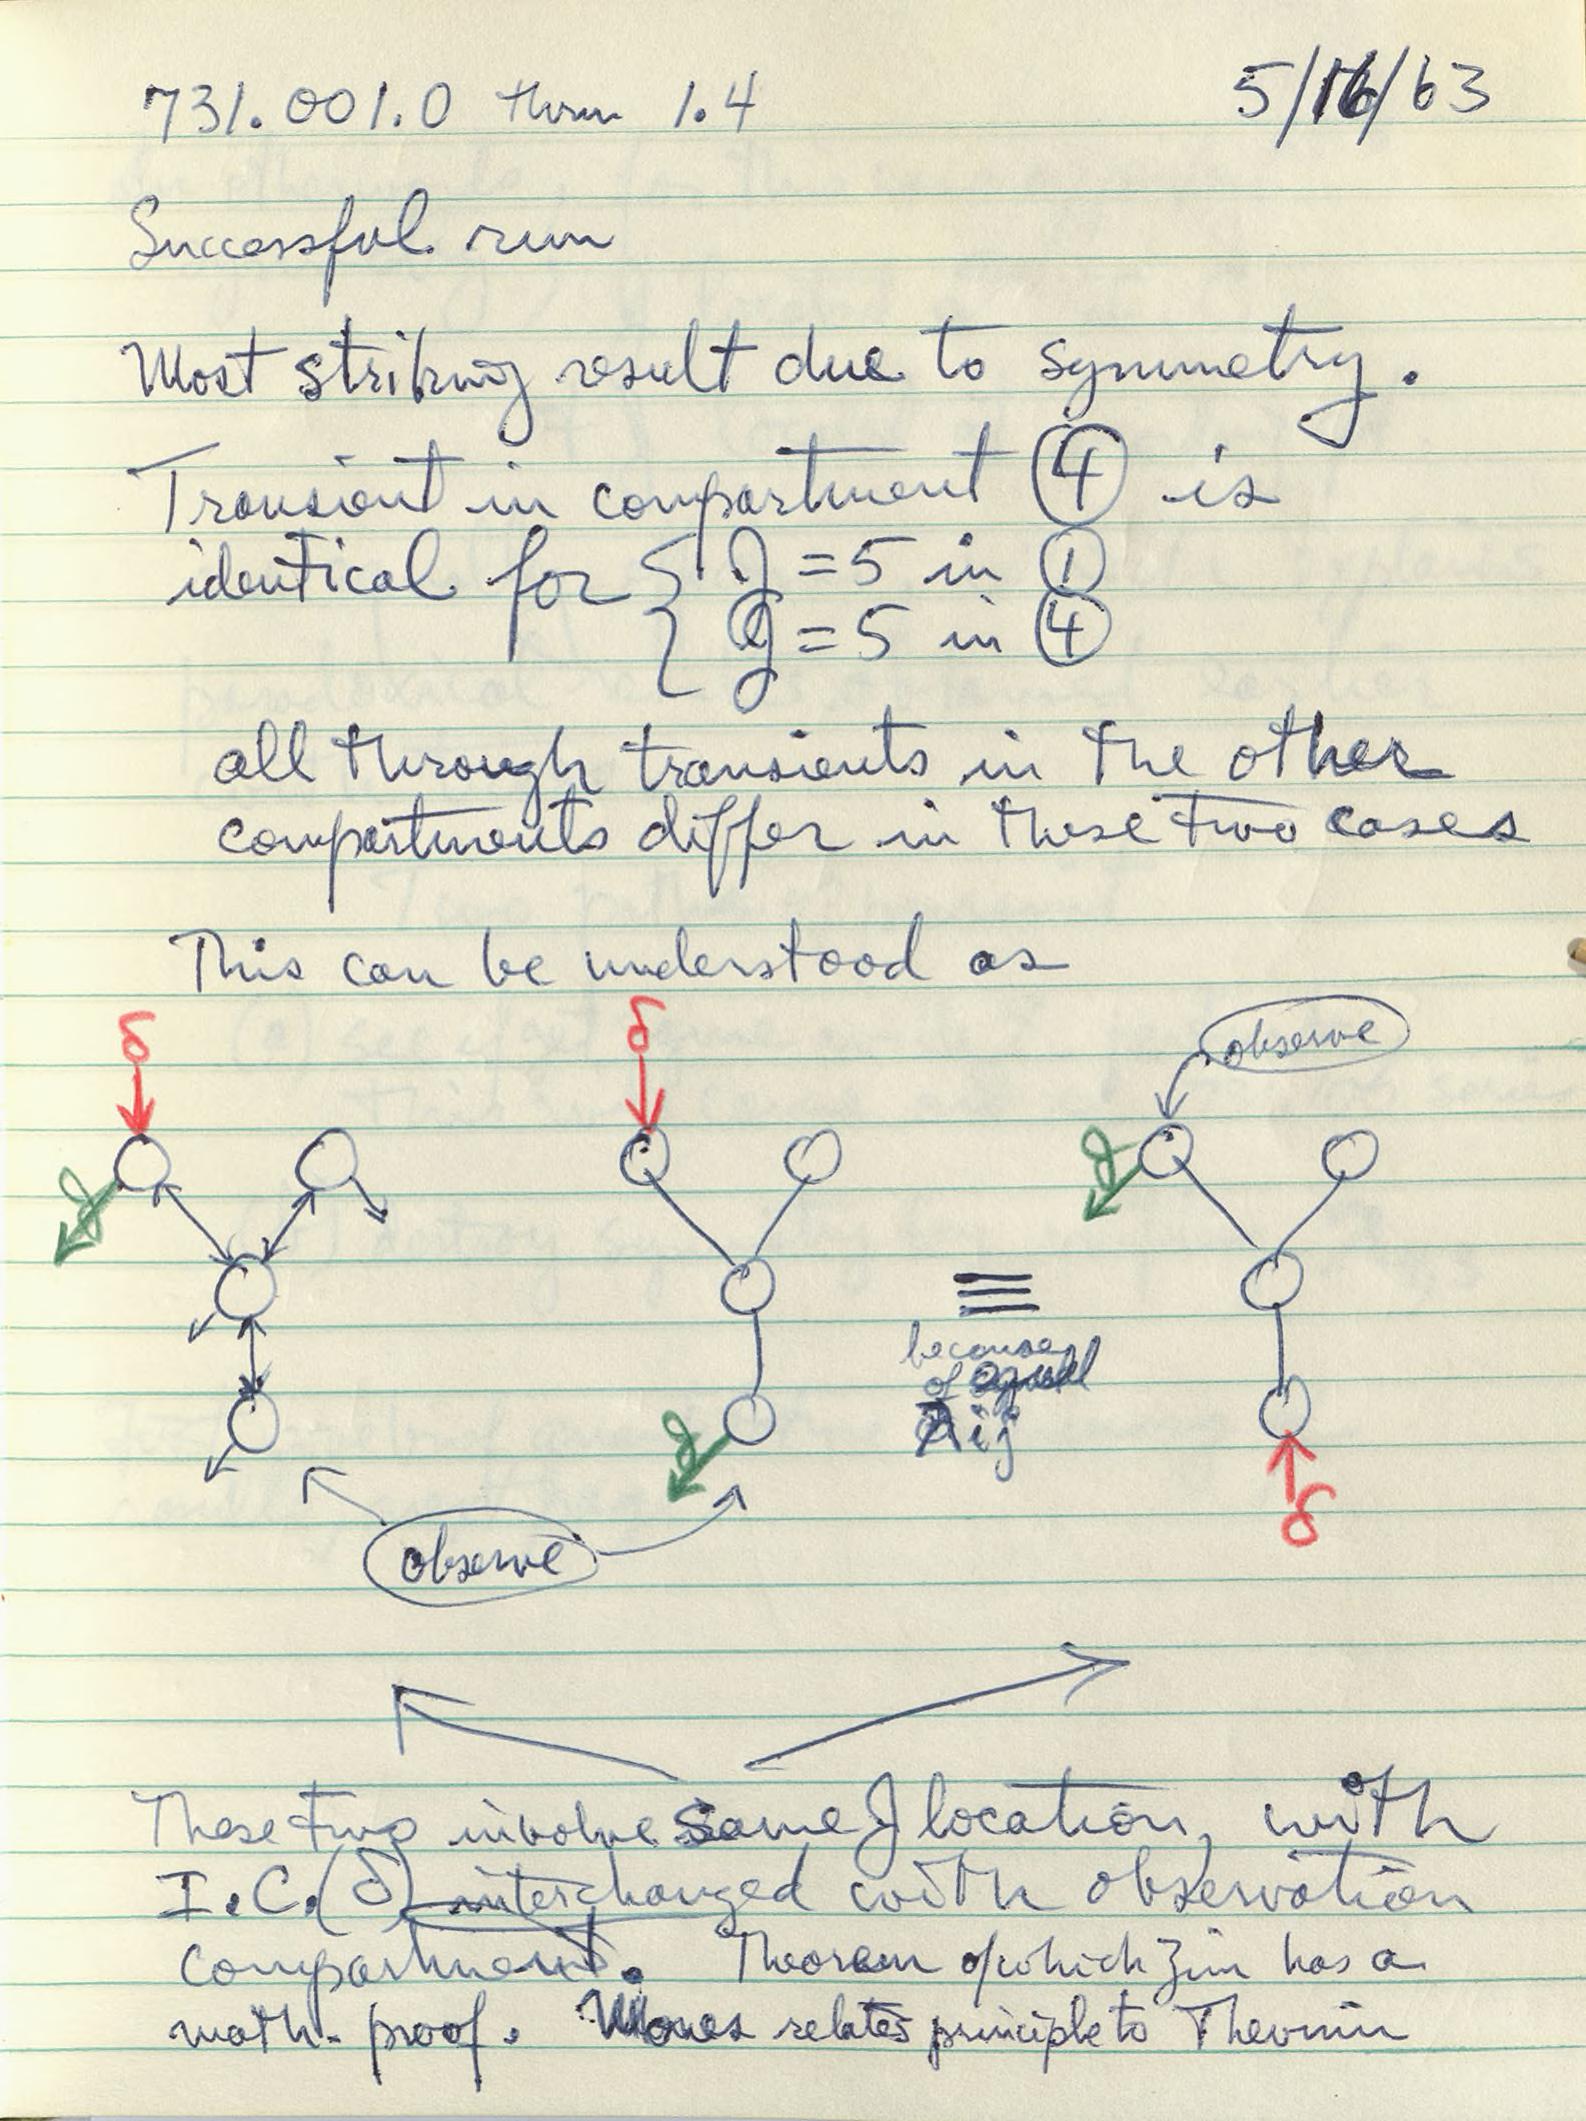 731.001.0 thru 1.4 5/16/63
Successful run
Most striking result due to symmetry.
Transient in compartment ④ is
identical for { 𝒥 = 5 in ①
{ 𝒥 = 5 in ④
all through transients in the other
compartments differ in these two cases
This can be understood as
δ δ observe
𝒥 𝒥
≡
because
of equal
λij
𝒥
δ
observe
These two involve same 𝒥 location, with
I.C.(δ) interchanged with observation
compartment. Theorem of which Jim has a
math. proof. relates principle to Thevenin